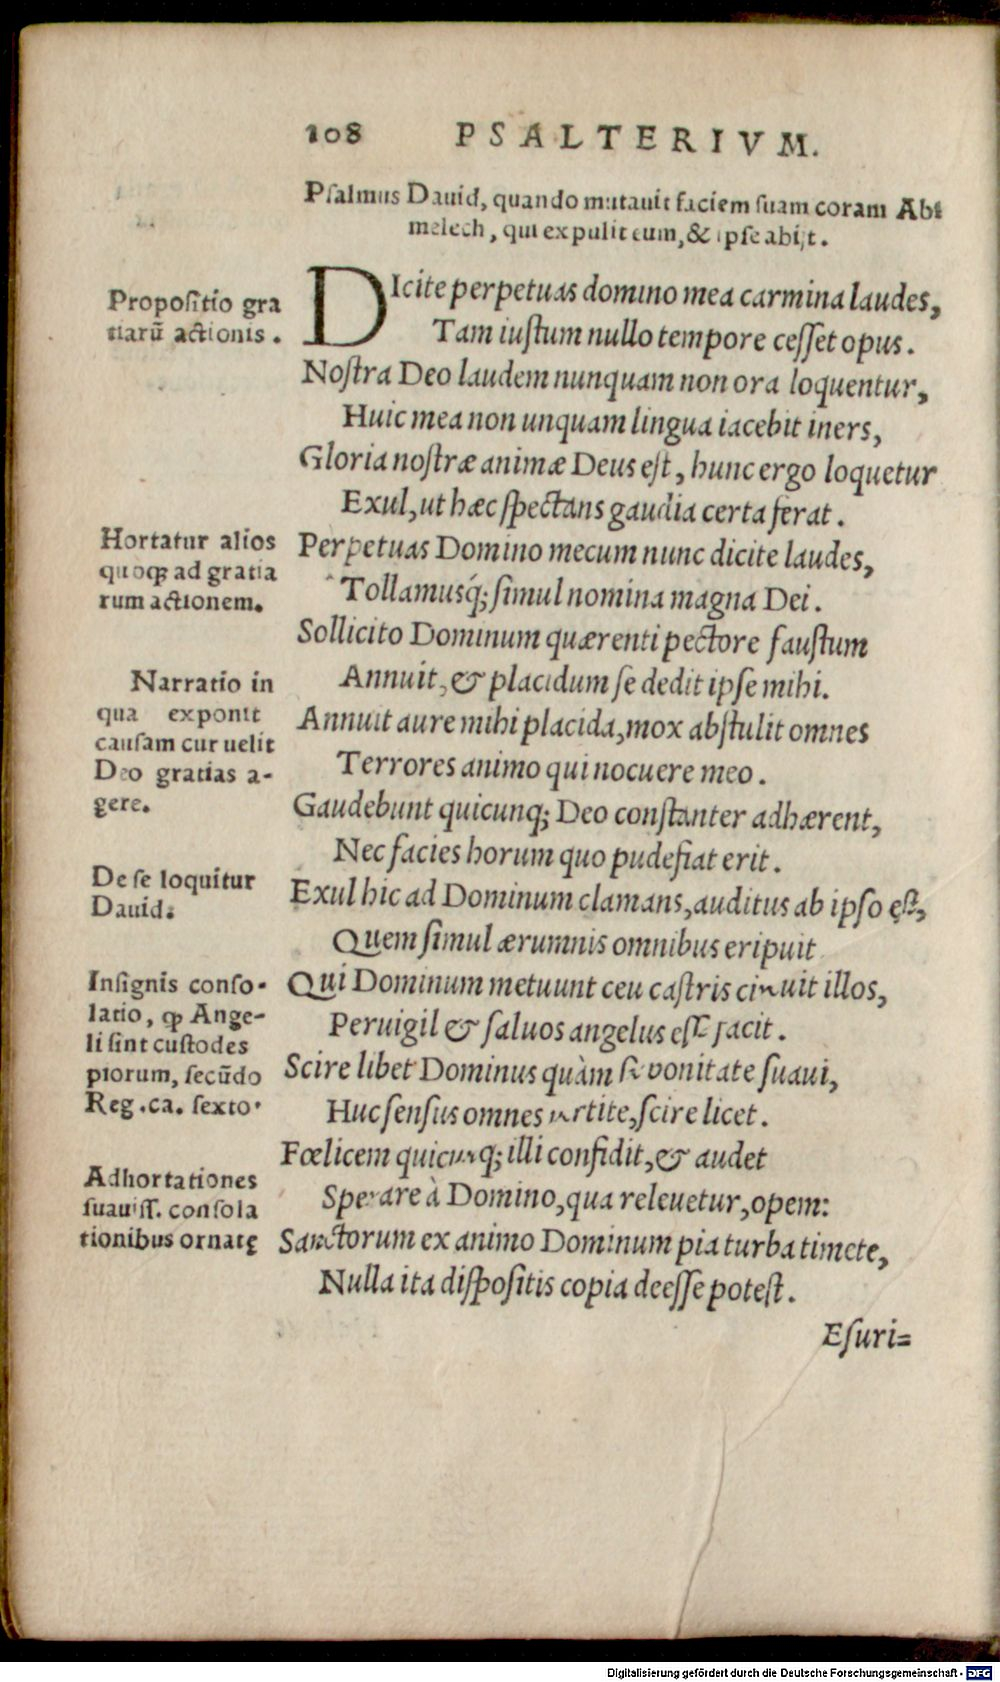 108 PSALTERIVM.
Psalmus Dauid, quando mutauit faciem suam coram Abi
melech, qui expulit eum, & ipse abijt.
Propositio gra
tiarū actionis.
DIcite perpetuas domino mea carmina laudes,
Tam iustum nullo tempore cesset opus.
Nostra Deo laudem nunquam non ora loquentur,
Huic mea non unquam lingua iacebit iners,
Gloria nostræ animæ Deus est, hunc ergo loquetur
Exul, ut hæc spectans gaudia certa ferat.
Hortatur alios
quoqꝫ ad gratia
rum actionem.
Perpetuas Domino mecum nunc dicite laudes,
Tollamusq́; simul nomina magna Dei.
Sollicito Dominum quærenti pectore faustum
Annuit, & placidum se dedit ipse mihi.
Narratio in
qua exponit
causam cur uelit
Deo gratias a-
gere.
Annuit aure mihi placida, mox abstulit omnes
Terrores animo qui nocuere meo.
Gaudebunt quicunq; Deo constanter adhærent,
Nec facies horum quo pudefiat erit.
De se loquitur
Dauid.
Exul hic ad Dominum clamans, auditus ab ipso est,
Quem simul ærumnis omnibus eripuit
Insignis conso-
latio, ꝙ Ange-
li sint custodes
piorum, secūdo
Reg. ca. sexto.
Qui Dominum metuunt ceu castris circuit illos,
Peruigil & saluos angelus esse facit.
Scire libet Dominus quàm sit bonitate suaui,
Huc sensus omnes uertite, scire licet.
Fœlicem quicunq; illi confidit, & audet
Sperare à Domino, qua releuetur, opem:
Adhortationes
suauiss. consola
tionibus ornatę
Sanctorum ex animo Dominum pia turba timete,
Nulla ita dispositis copia deesse potest.
Esuri=
Digitalisierung gefördert durch die Deutsche Forschungsgemeinschaft - DFG